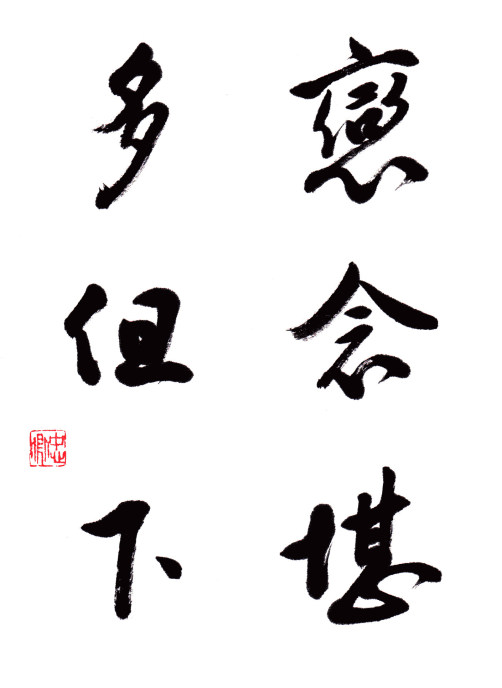 戀念堪
多但下